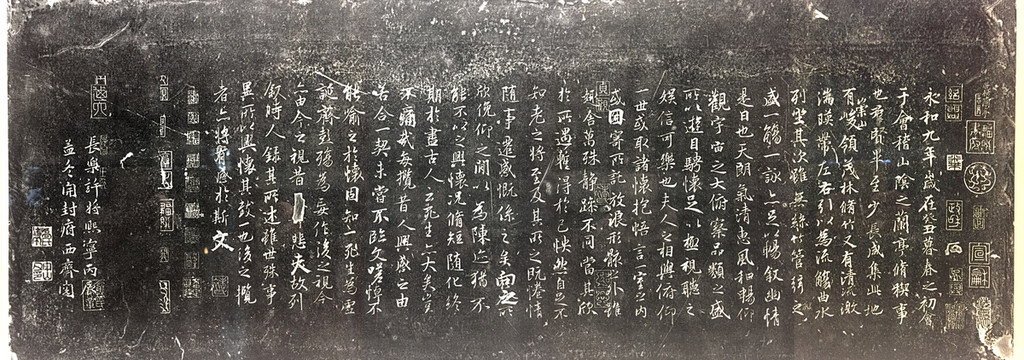 永和九年歲在癸丑暮春之初會
于會稽山陰之蘭亭脩禊事
也群賢畢至少長咸集此地
有峻領茂林脩竹又有清流激
崇山
湍暎帶左右引以為流觴曲水
列坐其次雖無絲竹管弦之
盛一觴一詠亦足以暢敘幽情
是日也天朗氣清惠風和暢仰
觀宇宙之大俯察品類之盛
所以遊目騁懷足以極視聽之
娛信可樂也夫人之相與俯仰
一世或取諸懷抱悟言一室之內
或因寄所託放浪形骸之外雖
趣舍萬殊靜躁不同當其欣
於所遇蹔得於己怏然自足不
知老之將至及其所之既惓情
隨事遷感慨係之矣向之所
欣俛仰之閒以為陳迹猶不
能不以之興懷況脩短隨化終
期於盡古人云死生亦大矣豈
不痛哉每攬昔人興感之由
若合一契未嘗不臨文嗟悼不
能喻之於懷固知一死生為虛
誕齊彭殤為妄作後之視今
亦由今之視昔悲夫故列
敘時人錄其所述雖世殊事
異所以興懷其致一也後之攬
者亦將有感於斯文
長樂許將熙寧丙辰
孟冬開封府西齋閱